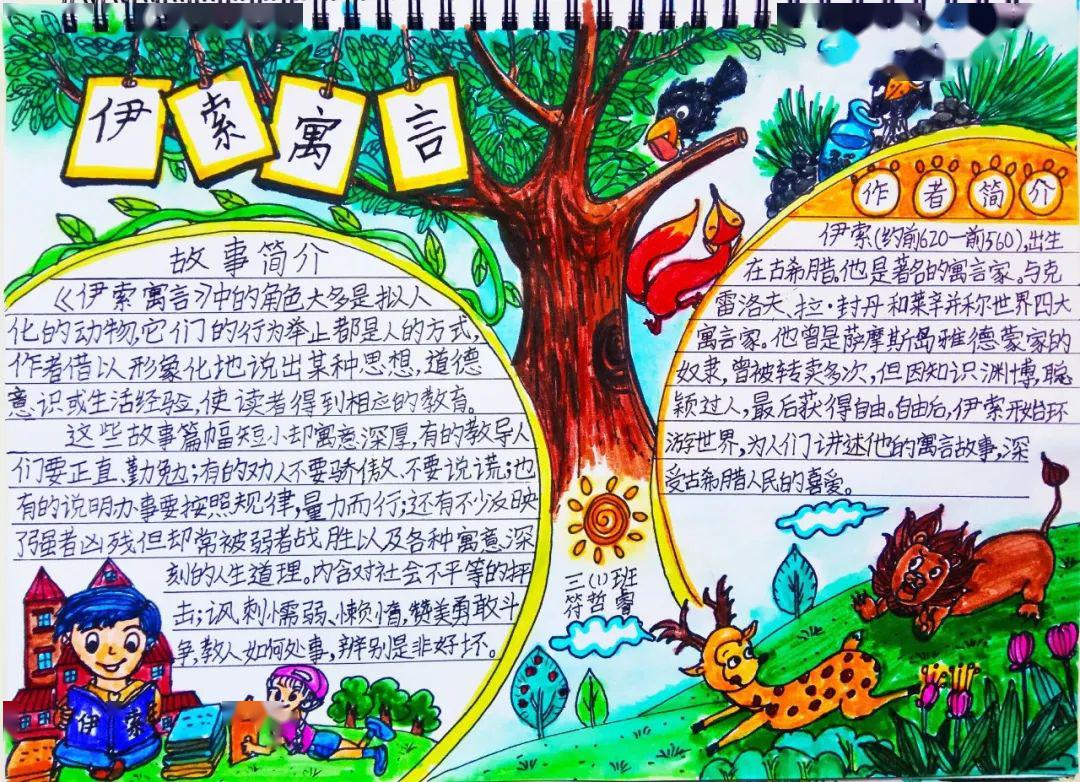 伊索寓言
故事简介
《伊索寓言》中的角色大多是拟人
化的动物,它们的行为举止都是人的方式,
作者借以形象化地说出某种思想、道德
意识或生活经验,使读者得到相应的教育。
这些故事篇幅短小却寓意深厚,有的教导人
们要正直、勤勉;有的劝人不要骄傲、不要说谎;也
有的说明办事要按照规律,量力而行;还有不少反映
了强者凶残但却常被弱者战胜以及各种寓意深
刻的人生道理。内含对社会不平等的抨
击;讽刺懦弱、懒惰,赞美勇敢斗
争,教人如何处事,辨别是非好坏。
作者简介
伊索(约前620—前560),出生
在古希腊。他是著名的寓言家。与克
雷洛夫、拉·封丹和莱辛并称世界四大
寓言家。他曾是萨摩斯岛雅德蒙家的
奴隶,曾被转卖多次,但因知识渊博,聪
颖过人,最后获得自由。自由后,伊索开始环
游世界,为人们讲述他的寓言故事,深
受古希腊人民的喜爱。
三(1)班
符哲睿
伊索